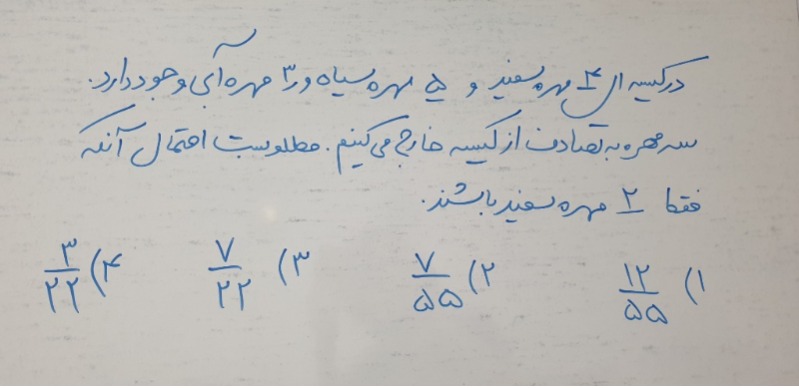 در کیسه ای ۴ مهره سفید و ۵ مهره سیاه و ۳ مهره آبی وجود دارد.
سه مهره به تصادف از کیسه خارج می کنیم. مطلوبست احتمال آنکه
فقط ۲ مهره سفید باشند.
۱) ۱۲/۵۵ ۲) ۷/۵۵ ۳) ۷/۲۲ ۴) ۳/۲۲